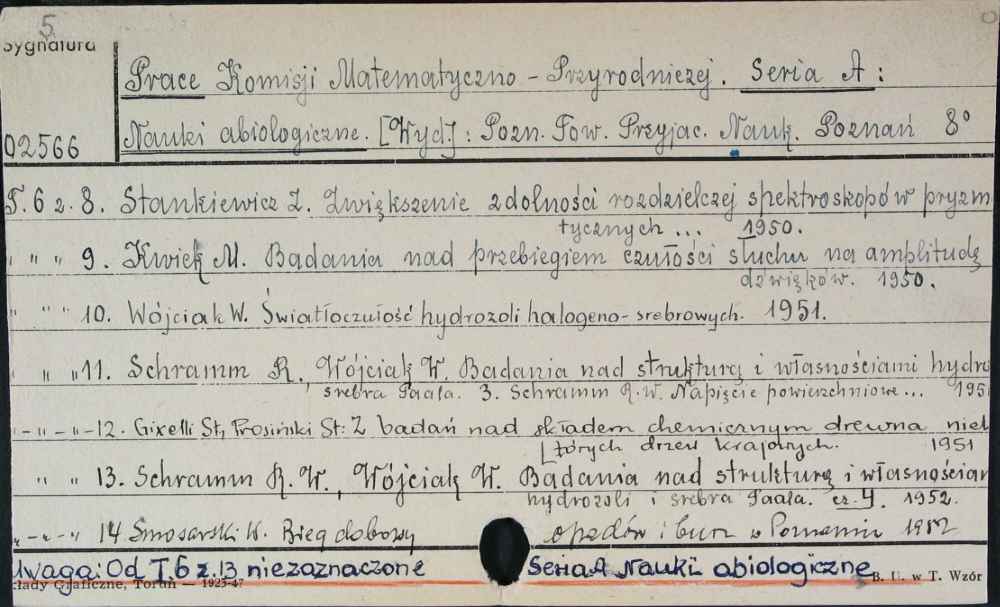 5
Sygnatura
Prace Komisji Matematyczno - Przyrodniczej. Seria A:
02566 Nauki abiologiczne. [Wyd]: Pozn. Tow. Przyjac. Nauk. Poznań 8°
T. 6 z. 8. Stankiewicz Z. Zwiększenie zdolności rozdzielczej spektroskopów pryzm
tycznych ... 1950.
" " " 9. Kwiek M. Badania nad przebiegiem czułości słuchu na amplitudę
dźwięków. 1950.
" " " 10. Wójciak W. Światłoczułość hydrozoli halogeno-srebrowych. 1951.
" " " 11. Schramm R., Wójciak W. Badania nad strukturą i własnościami hydro
srebra Paala. 3. Schramm R. W. Napięcie powierzchniowe ... 195
" - " - " - 12. Gixelli St, Prosiński St: Z badań nad składem chemicznym drewna niek
[tórych drzew krajowych. 1951
" " 13. Schramm R. W., Wójciak W. Badania nad strukturą i własnościam
hydrozoli i srebra Paala. cz. 4. 1952.
" - " - " 14 Smosarski W. Bieg dobowy opadów i burz w Poznaniu 1952
Uwaga: Od T 6 z. 13 niezaznaczone Seria A Nauki abiologiczne
kłady Graficzne, Toruń — 1925-47 B. U. w T. Wzór